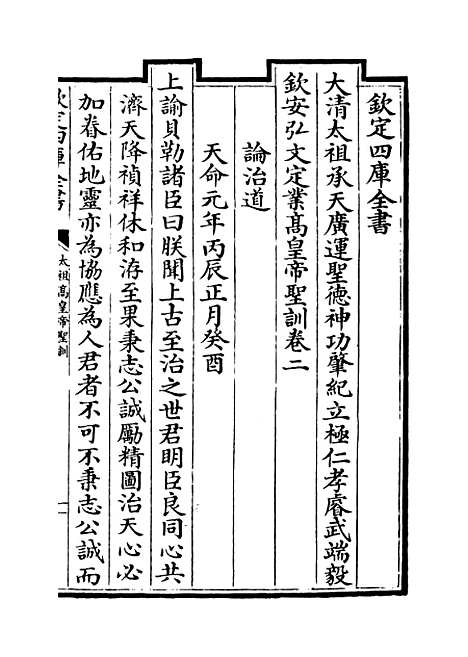 欽定四庫全書
大清太祖承天廣運聖德神功肇紀立極仁孝睿武端毅
欽安弘文定業髙皇帝聖訓卷二
論治道
天命元年丙辰正月癸酉
上諭貝勒諸臣曰朕聞上古至治之世君明臣良同心共
濟天降禎祥休和洊至果秉志公誠勵精圖治天心必
加眷佑地靈亦為協應為人君者不可不秉志公誠而
欽定四庫全書
太祖髙皇帝聖訓
一